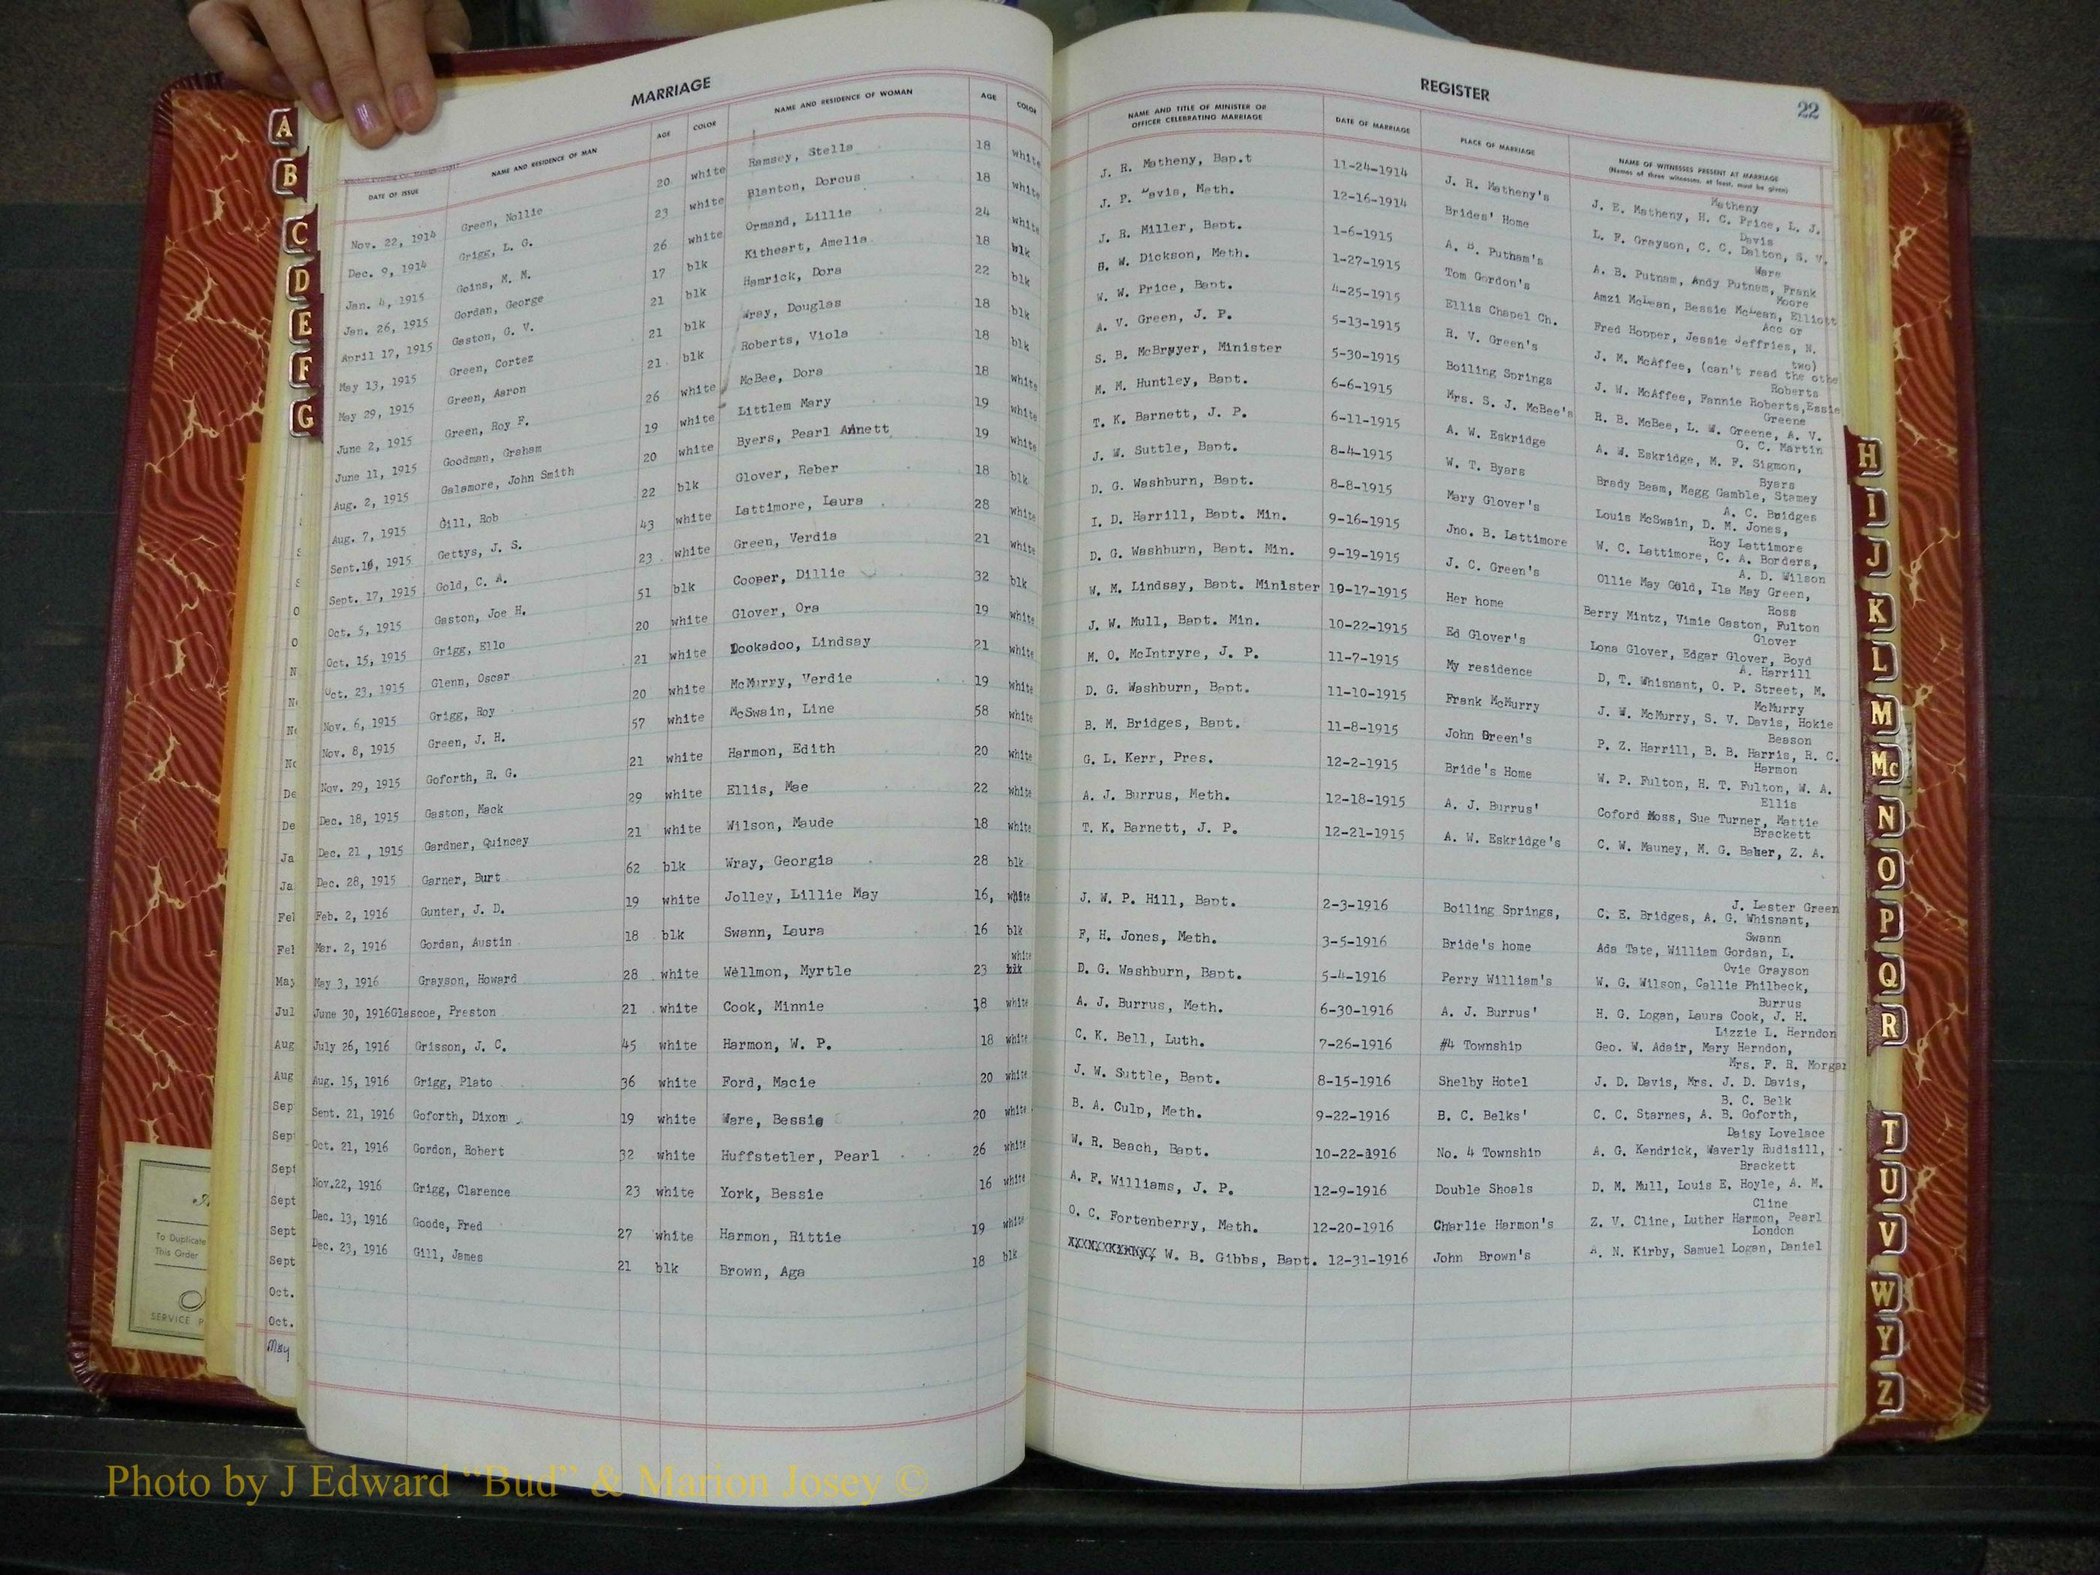 MARRIAGE
DATE OF ISSUE NAME AND RESIDENCE OF MAN AGE COLOR NAME AND RESIDENCE OF WOMAN AGE COLOR
Nov. 22, 1914 Green, Nollie 20 white Ramsey, Stella 18 white
Dec. 9, 1914 Grigg, L. G. 23 white Blanton, Dorcus 18 white
Jan. 4, 1915 Goins, M. M. 26 white Ormand, Lillie 24 white
Jan. 26, 1915 Gordan, George 17 blk Kitheart, Amelia 18 blk
April 17, 1915 Gaston, G. V. 21 blk Hamrick, Dora 22 blk
May 13, 1915 Green, Cortez 21 blk Wray, Douglas 18 blk
May 29, 1915 Green, Aaron 21 blk Roberts, Viola 18 blk
June 2, 1915 Green, Roy F. 26 white McBee, Dora 18 white
June 11, 1915 Goodman, Graham 19 white Littlem Mary 19 white
Aug. 2, 1915 Galamore, John Smith 20 white Byers, Pearl Annett 19 white
Aug. 7, 1915 Gill, Rob 22 blk Glover, Reber 18 blk
Sept.16, 1915 Gettys, J. S. 43 white Lattimore, Laura 28 white
Sept. 17, 1915 Gold, C. A. 23 white Green, Verdia 21 white
Oct. 5, 1915 Gaston, Joe H. 51 blk Cooper, Dillie 32 blk
Oct. 15, 1915 Grigg, Ello 20 white Glover, Ora 19 white
Oct. 23, 1915 Glenn, Oscar 21 white Dookadoo, Lindsay 21 white
Nov. 6, 1915 Grigg, Roy 20 white McMurry, Verdie 19 white
Nov. 8, 1915 Green, J. H. 57 white McSwain, Line 58 white
Nov. 29, 1915 Goforth, R. G. 21 white Harmon, Edith 20 white
Dec. 18, 1915 Gaston, Mack 29 white Ellis, Mae 22 white
Dec. 21 , 1915 Gardner, Quincey 21 white Wilson, Maude 18 white
Dec. 28, 1915 Garner, Burt 62 blk Wray, Georgia 28 blk
Feb. 2, 1916 Gunter, J. D. 19 white Jolley, Lillie May 16, white
Mar. 2, 1916 Gordan, Austin 18 blk Swann, Laura 16 blk
white
May 3, 1916 Grayson, Howard 28 white Wellmon, Myrtle 23 blk
June 30, 1916Glascoe, Preston 21 white Cook, Minnie 18 white
July 26, 1916 Grisson, J. C. 45 white Harmon, W. P. 18 white
Aug. 15, 1916 Grigg, Plato 36 white Ford, Macie 20 white
Sept. 21, 1916 Goforth, Dixon 19 white Ware, Bessie 20 white
Oct. 21, 1916 Gordon, Robert 32 white Huffstetler, Pearl 26 white
Nov.22, 1916 Grigg, Clarence 23 white York, Bessie 16 white
Dec. 13, 1916 Goode, Fred 27 white Harmon, Rittie 19 white
Dec. 23, 1916 Gill, James 21 blk Brown, Aga 18 blk
REGISTER
22
NAME AND TITLE OF MINISTER OR
OFFICER CELEBRATING MARRIAGE
DATE OF MARRIAGE PLACE OF MARRIAGE
NAME OF WITNESSES PRESENT AT MARRIAGE
(Names of three witnesses, at least, must be given)
Matheny
J. R. Matheny, Bap.t 11-24-1914 J. R. Matheny's J. E. Matheny, H. C. Price, L. J.
Davis
J. P. Davis, Meth. 12-16-1914 Brides' Home L. F. Grayson, C. C. Dalton, S. V.
Ware
J. R. Miller, Bapt. 1-6-1915 A. B. Putham's A. B. Putnam, Andy Putnam, Frank
Moore
H. W. Dickson, Meth. 1-27-1915 Tom Gordon's Amzi McLean, Bessie McLean, Elliott
Acc or
W. W. Price, Bapt. 4-25-1915 Ellis Chapel Ch. Fred Hopper, Jessie Jeffries, N.
two)
A. V. Green, J. P. 5-13-1915 R. V. Green's J. M. McAffee, (can't read the othe
Roberts
S. B. McBryer, Minister 5-30-1915 Boiling Springs J. W. McAffee, Fannie Roberts,Essie
Greene
M. M. Huntley, Bapt. 6-6-1915 Mrs. S. J. McBee's R. B. McBee, L. W. Greene, A. V.
G. C. Martin
T. K. Barnett, J. P. 6-11-1915 A. W. Eskridge A. W. Eskridge, M. F. Sigmon,
Byers
J. W. Suttle, Bapt. 8-4-1915 W. T. Byars Brady Beam, Megg Gamble, Stamey
A. C. Bridges
D. G. Washburn, Bapt. 8-8-1915 Mary Glover's Louis McSwain, D. M. Jones,
Roy Lattimore
I. D. Harrill, Bapt. Min. 9-16-1915 Jno. B. Lattimore W. C. Lattimore, C. A. Borders,
A. D. Wilson
D. G. Washburn, Bapt. Min. 9-19-1915 J. C. Green's Ollie May Gold, Ila May Green,
Ross
W. M. Lindsay, Bapt. Minister 10-17-1915 Her home Berry Mintz, Vimie Gaston, Fulton
Glover
J. W. Mull, Bapt. Min. 10-22-1915 Ed Glover's Lona Glover, Edgar Glover, Boyd
A. Harrill
M. O. McIntryre, J. P. 11-7-1915 My residence D, T. Whisnant, O. P. Street, M.
McMurry
D. G. Washburn, Bapt. 11-10-1915 Frank McMurry J. W. McMurry, S. V. Davis, Hokie
Beason
B. M. Bridges, Bapt. 11-8-1915 John Green's P. Z. Harrill, B. B. Harris, R. C.
Harmon
G. L. Kerr, Pres. 12-2-1915 Bride's Home W. P. Fulton, H. T. Fulton, W. A.
Ellis
A. J. Burrus, Meth. 12-18-1915 A. J. Burrus' Coford Moss, Sue Turner, Mattie
Brackett
T. K. Barnett, J. P. 12-21-1915 A. W. Eskridge's C. W. Mauney, M. G. Baber, Z. A.
J. Lester Green
J. W. P. Hill, Bapt. 2-3-1916 Boiling Springs, C. E. Bridges, A. G. Whisnant,
Swann
F, H. Jones, Meth. 3-5-1916 Bride's home Ada Tate, William Gordan, L.
Ovie Grayson
D. G. Washburn, Bapt. 5-4-1916 Perry William's W. G. Wilson, Callie Philbeck,
Burrus
A. J. Burrus, Meth. 6-30-1916 A. J. Burrus' H. G. Logan, Laura Cook, J. H.
Lizzie L. Herndon
C. K. Bell, Luth. 7-26-1916 #4 Township Geo. W. Adair, Mary Herndon,
Mrs. F. R. Morgan
J. W. Suttle, Bapt. 8-15-1916 Shelby Hotel J. D. Davis, Mrs. J. D. Davis,
B. C. Belk
B. A. Culp, Meth. 9-22-1916 B. C. Belks' C. C. Starnes, A. B. Goforth,
Daisy Lovelace
W. R. Beach, Bapt. 10-22-1916 No. 4 Township A. G. Kendrick, Waverly Rudisill,
Brackett
A. F. Williams, J. P. 12-9-1916 Double Shoals D. M. Mull, Louis E. Hoyle, A. M.
Cline
O. C. Fortenberry, Meth. 12-20-1916 Charlie Harmon's Z. V. Cline, Luther Harmon, Pearl
London
W. B. Gibbs, Bapt. 12-31-1916 John Brown's A. N. Kirby, Samuel Logan, Daniel
A
B
C
D
E
F
G
H
I
J
K
L
M
Mc
N
O
P
Q
R
T
U
V
W
Y
Z
S
S
O
O
N
No
No
De
De
Ja
Ja
Fel
Fel
May
Jul
Aug
Aug
Sep
Sept
Sept
Sept
Sept
Sept
Oct.
Oct.
May
To Duplicate
This Order
SERVICE
Photo by J Edward “Bud” & Marion Josey ©